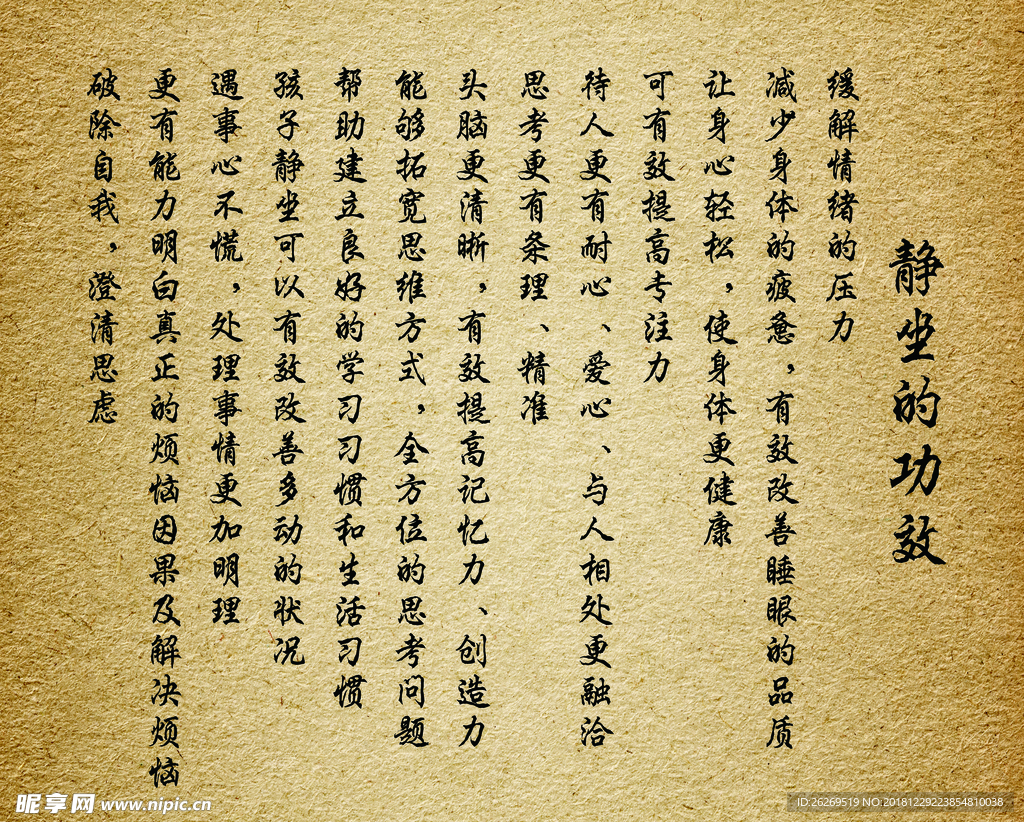 静坐的功效
缓解情绪的压力
减少身体的疲惫，有效改善睡眠的品质
让身心轻松，使身体更健康
可有效提高专注力
待人更有耐心、爱心、与人相处更融洽
思考更有条理、精准
头脑更清晰，有效提高记忆力、创造力
能够拓宽思维方式，全方位的思考问题
帮助建立良好的学习习惯和生活习惯
孩子静坐可以有效改善多动的状况
遇事心不慌，处理事情更加明理
更有能力明白真正的烦恼因果及解决烦恼
破除自我，澄清思虑
昵享网 www.nipic.cn
ID:26269519 NO:20181229223854810038